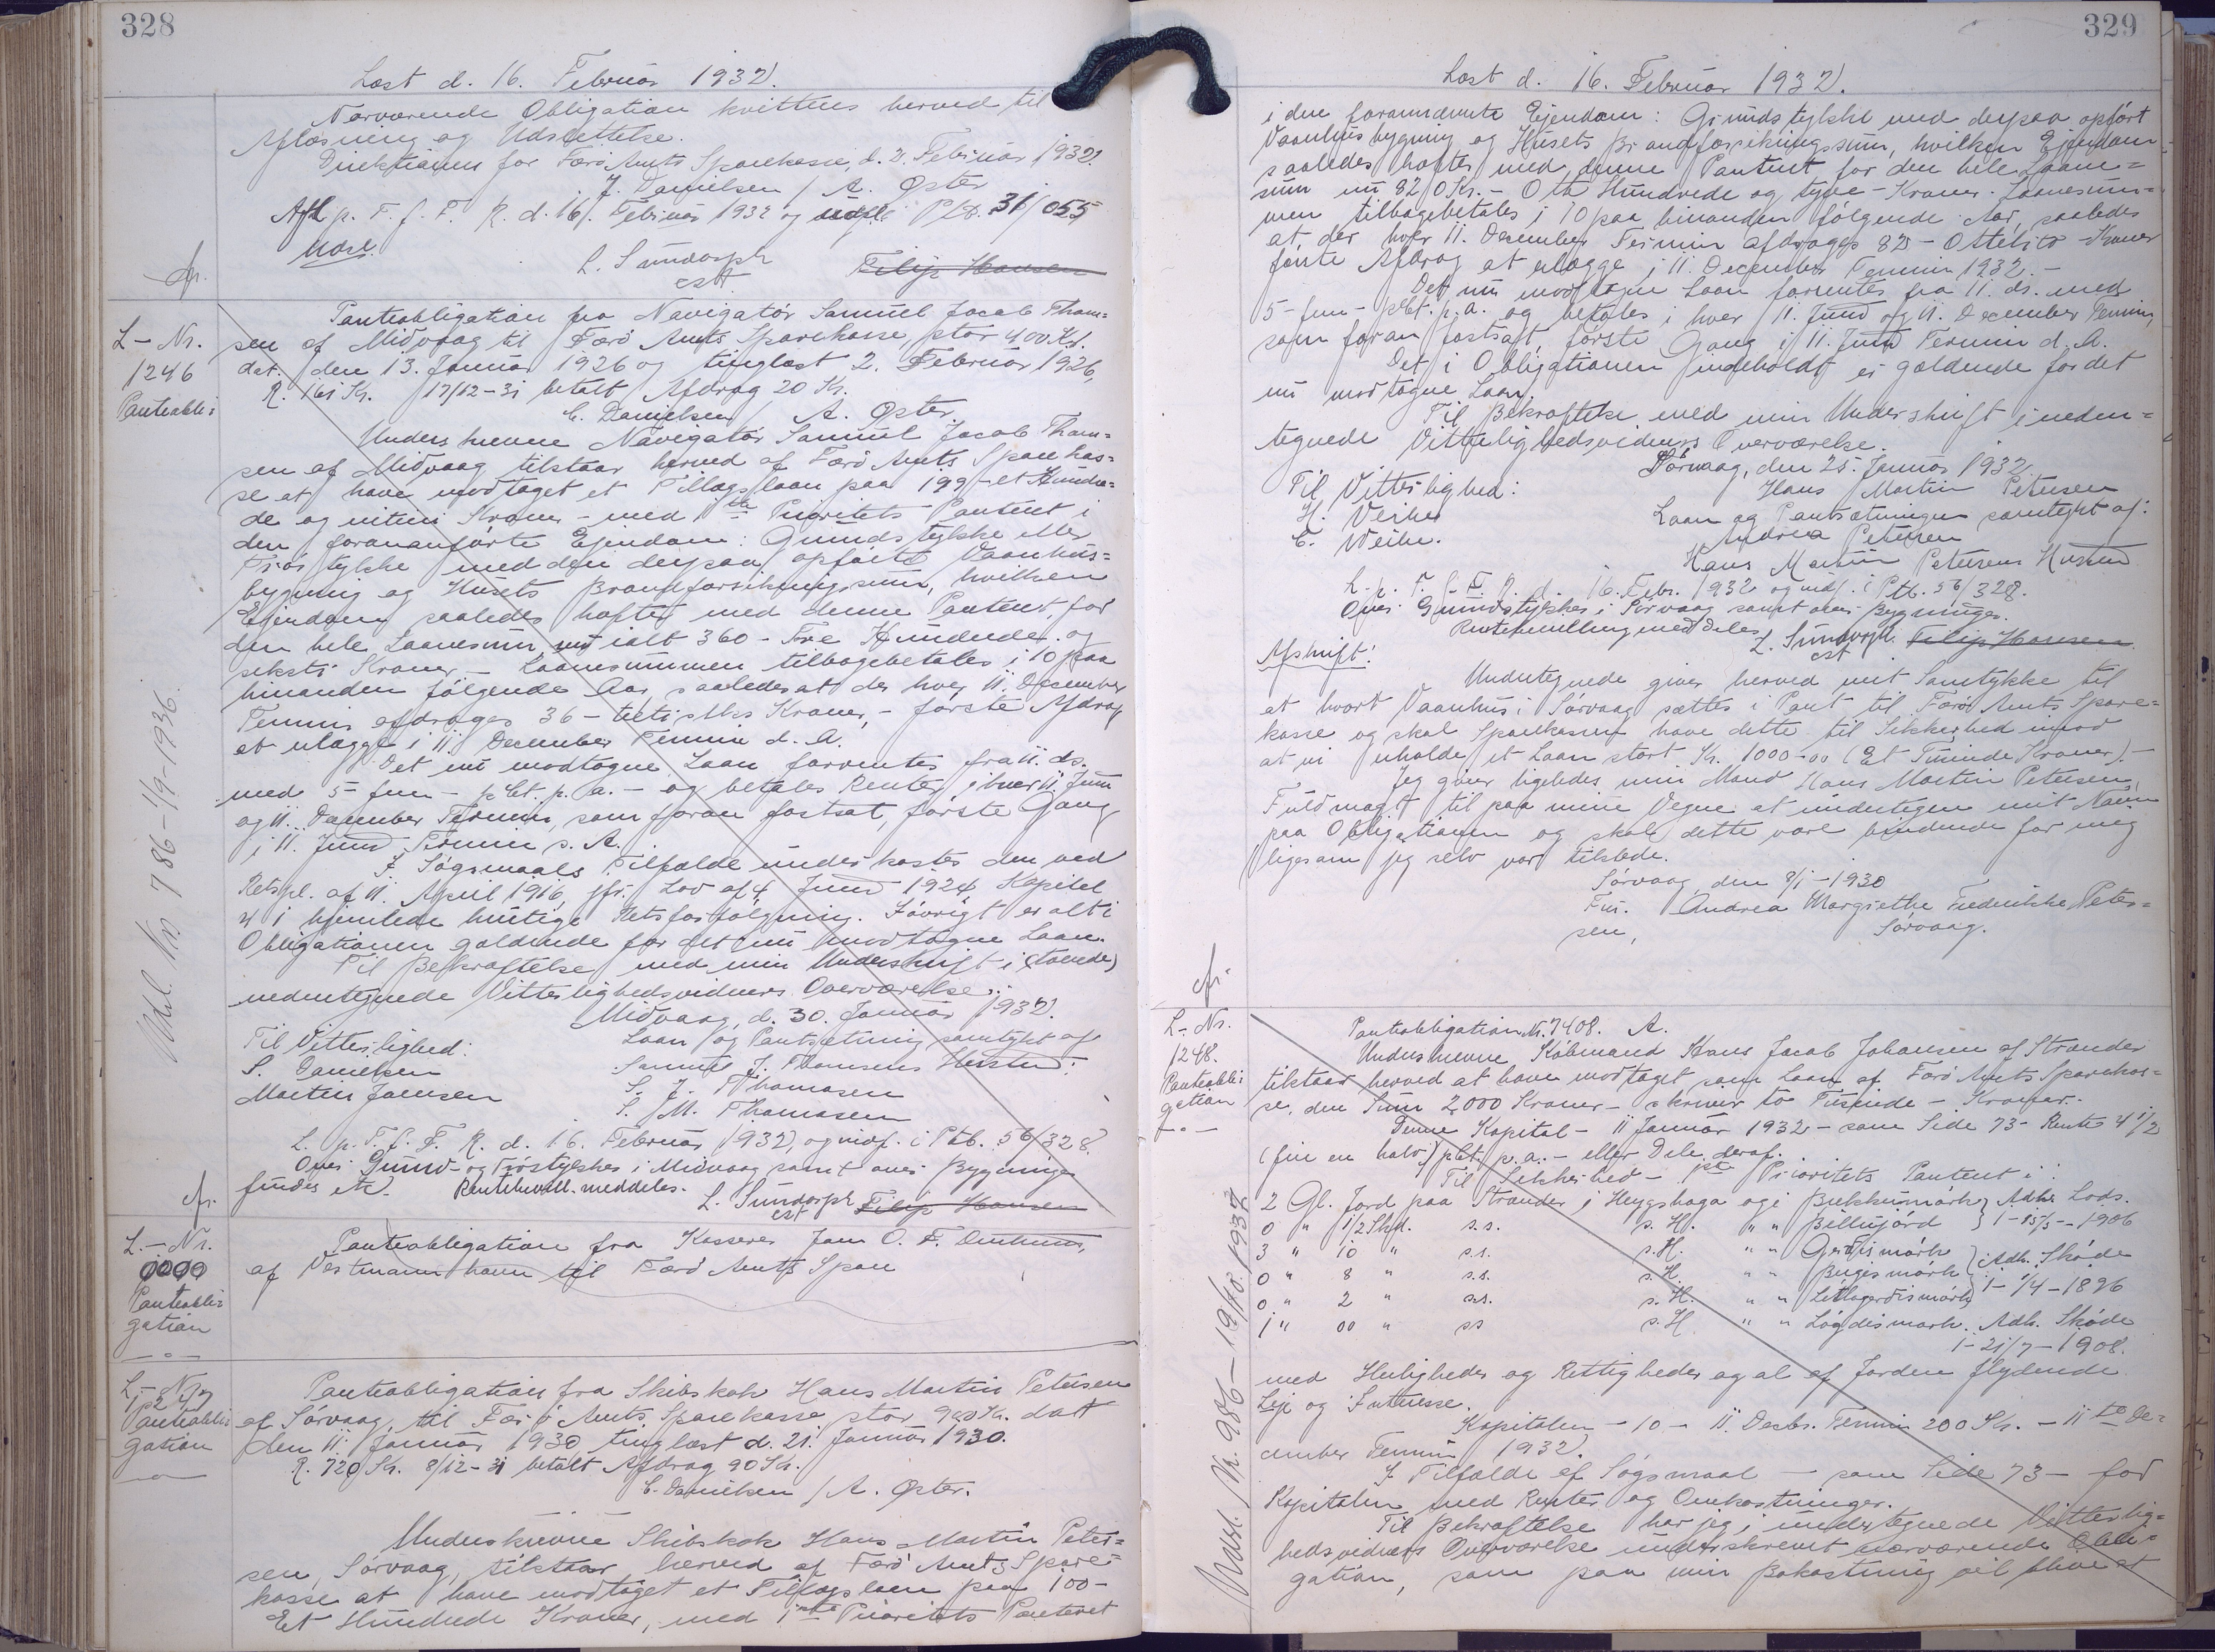 328
Læst d. 16. Februar 1932.
Nærværende Obligation kvitteres herved til
Aflæsning og Udslettelse.
Direktionen for Færø Amts Sparekasse, d. 2. Februar 1932
J. Danielsen / A. Øster
Afl p. T. f. F. R. d. 16. Februar 1932 og udsl. i Ptb. 31/055
Udsl.
L. Sundorph
cst.
Filip Hansen
L-Nr.
1246
Panteobli-
Udsl. Nr. 786-1/9-1936.
Panteobligation fra Navigatør Samuel Jacob Thom-
sen af Midvaag til Færø Amts Sparekasse stor 400 Kr.
dat. den 13. Januar 1926 og tinglæst 2. Februar 1926,
R. 161 Kr. 17/12-31 betalt Afdrag 20 Kr.
C. Danielsen / A. Øster.
Underskrevne Navigatør Samuel Jacob Thom-
sen af Midvaag tilstaar herved af Færø Amts Sparekas-
se at have modtaget et Tillægslaan paa 199 - et Hundre-
de og nitini Kroner - med 1ste Prioritets Panteret i
den forananførte Ejendom: Grundstykke eller
Trøstykke med den derpaa opførte Vaanhus-
bygning og Husets Brandforsikringssum, hvilken
Ejendom saaledes hæfter med denne Panteret, for
den hele Laanesum, nu ialt 360 - Tre Hundrede og
seksti Kroner - Laanesummen tilbagebetales i 10 paa
hinanden følgende Aar, saaledes at der hver 11. December
Termin afdrages 36 - tretiseks Kroner, - første Afdrag
at erlægge i 11. December Termin d. A.
Det nu modtagne Laan forrentes fra 11. ds.
med 5 - fem - pCt. p. a. - og betales Renter i hver 11. Juni
og 11. December Termin, som foran fastsat, første Gang
i 11. Juni Termin d. A.
I Søgsmaals Tilfælde underkastes den ved
Retspl. af 11. April 1916, jfr. Lov af 4. Juni 1924 Kapitel
4 i hjemlede hurtige Retsforfølgning. Iøvrigt er alt i
Obligationen gældende for det nu modtagne Laan.
Til Bekræftelse med min Underskrift i (tvende)
nedentegnede Vitterlighedsvidners Overværelse.
Midvaag, d. 30. Januar 1932.
Til Vitterlighed:
Laan og Pantsætning samtykt af
S. Danielsen
Samuel J. Thomsens Hustru:
Martin Joensen
S. J. Thomasen
S. M. Thomasen
L. p. T. f. F. R. d. 16. Februar 1932, og indf. i Ptb. 56/328.
Over Grund- og Trøstykkes i Midvaag samt over Bygninger
findes etc. Rentebevill. meddeles.
L. Sundorph
cst
Filip Hansen
L.-Nr.
Panteobli-
gation
Panteobligation fra Kasserer Jam O. F.
af Vestmannhavn til Færø Amts Spare
L-Nr
Panteobli-
gation
Panteobligation fra Skibskok Hans Martin Petersen
af Sørvaag, til Færø Amts Sparekasse, stor 900 Kr. dat
den 11. Januar 1930, tinglæst d. 21. Januar 1930.
R. 720 Kr. 8/12-31 betalt Afdrag 90 Kr.
C. Danielsen / A. Øster.
Underskrevne Skibskok Hans Martin Peter-
sen, Sørvaag, tilstaar herved af Færø Amts Spare-
kasse at have modtaget et Tillægslaan paa 100 -
Et Hundrede Kroner, med 1ste Prioritets Panteret
329
Læst d. 16. Februar 1932.
i den forannævnte Ejendom: Grundstykke med derpaa opført
Vaanhusbygning og Husets Brandforsikringssum, hvilken Ejendom
saaledes hæfter med denne Panteret for den hele Laane-
sum nu 820 Kr. - Otte Hundrede og tyve - Kroner. Laanesum-
men tilbagebetales i 10 paa hinanden følgende Aar, saaledes
at der hver 11. December Termin afdrages 82 - Otteti to - Kroner
første Afdrag at erlægge i 11. December Termin 1932. -
Det nu modtagne Laan forrentes fra 11. ds. med
5 - fem - pCt. p. a. og betales i hver 11. Juni og 11. December Termin,
som foran fastsat, første Gang i 11. Juni Termin d. A.
Det i Obligationen indeholdt er gældende for det
nu modtagne Laan.
Til Bekræftelse med min Underskrift i neden-
tegnede Vitterlighedsvidners Overværelse.
Sørvaag, den 25. Januar 1932.
Til Vitterlighed:
Hans Martin Petersen
H. Veihe
Laan og Pantsætningen samtykt af:
C. Weihe.
Andrea Petersen
Hans Martin Petersens Hustru
L. p. T. f. F. R. d. 16. Febr. 1932 og indf. i Ptb. 56/328.
Over Grundstykkes i Sørvaag samt over Bygninger.
Rentebevilling meddeles
L. Sundorph.
cst
Filip Hansen
Afskrift!
Undertegnede giver herved mit Samtykke til
at hvort Vaanhus i Sørvaag sættes i Pant til Færø Amts Spare-
kasse og skal Sparekassen have dette til Sikkerhed imod
at vi erholde et Laan stort Kr. 1000-00 (Et Tusinde Kroner). -
Jeg giver ligeledes min Mand Hans Martin Petersen,
Fuldmagt til paa mine Vegne at undertegne mit Navn
paa Obligationen og skal dette være bindende for meg
ligesom jeg selv var tilstede.
Sørvaag, den 8/1-1930
Fru. Andrea Margrethe Fredrikke Peter-
sen, Sørvaag.
L-Nr.
1248.
Panteobli-
gation
Panteobligation Nr. 7408. A.
Underskrevne Købmand Hans Jacob Johansen af Strander
tilstaar herved at have modtaget som Laan af Færø Amts Sparekas-
se, den Sum 2,000 Kroner - skriver to Tusinde - Kroner.-
Denne Kapital - 11 Januar 1932 - som Side 73 - Rente 4 1/2
(fire en halv) pCt. p. a. - eller Dele deraf.
Til Sikkerhed - 1ste Prioritets Panteret i:
2 Gl. Jord paa Strander i Heygshaga og i Bukkumørk } Adk. Lods.
0 " 1/2 Skd. s.s. s. H. " " Billujørd } 1-15/5-1906
3 " 10 " s.s. s. H. " " Gerdismørk } Adk. Skøde
0 " 8 " s.s. s. H. " " Bugismørk
0 " 2 " s.s. s. H. " " Litlagerdismørk } 1-1/4-1896
1 " 00 " ss s. H. " " Løgdismørk. Adk. Skøde
1-21/7-1908.
med Herligheder og Rettigheder og al af Jorden flydende
Leje og Interesse.
Kapitalen - 10 - 11. Decbr. Termin 200 Kr. - 11te De-
cember Termin 1932.
I Tilfælde af Søgsmaal - som Side 73 - for
Kapitalen med Renter og Omkostninger.
Til Bekræftelse har jeg i undertegnede Vitterlig-
hedsvidners Overværelse underskrevet nærværende Obli-
gation, som paa min Bekostning vil blive at